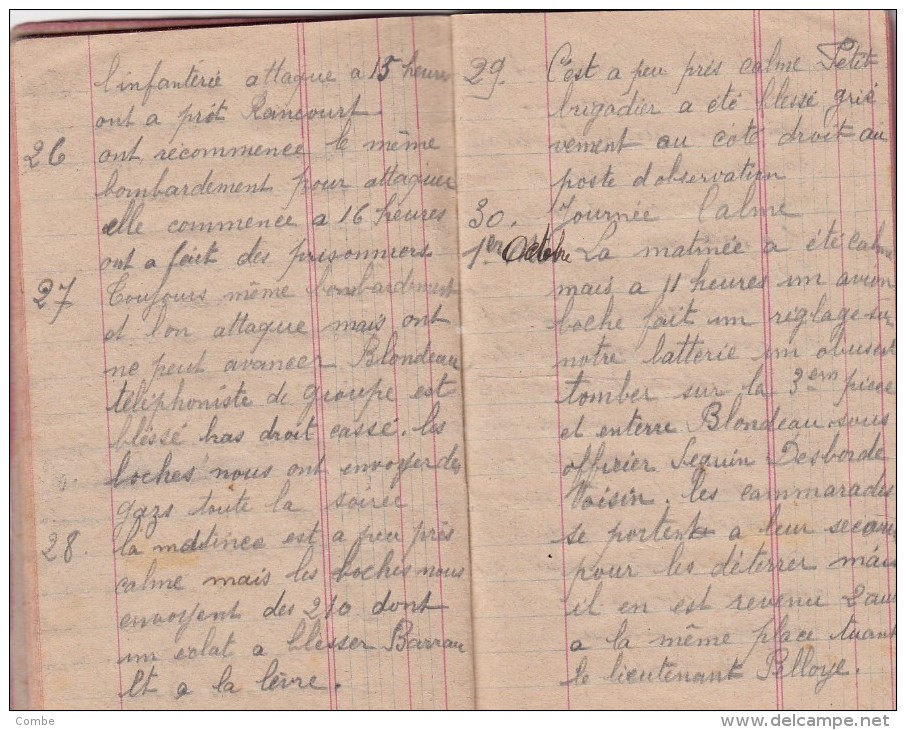 l'infanterie attaque a 15 heures
ont a prit Rancourt.
26 ont recommence le même
bombardement pour attaquer
elle commence a 16 heures
ont a fait des prisonniers.
27 Toujours même bombardement
et l'on attaque mais ont
ne peut avancer Blondeau
téléphoniste de groupe est
bléssé bras droit cassé. les
boches nous ont envoyer des
gazs toute la soirée
28. la matinee est a peu près
calme mais les boches nous
envoyent des 210 dont
un eclat a blesser Barrau
Et a la lèvre.
29. C'est a peu prés calme Petit
brigadier a été blessé griè
vement au côté droit au
poste d'observation
30. Journée Calme
1er Octobre La matinée a été calme
mais a 11 heures un avion
boche fait un réglage sur
notre batterie un obus est
tomber sur la 3em piece
et enterre Blondeau sous
officier Seguin Desborde
Voisin. les cammarades
se portent a leur secours
pour les déterrer mais
il en est revenu 2 au
a la même place tuant
le lieutenant Pelloye.
Combe
www.delcampe.net